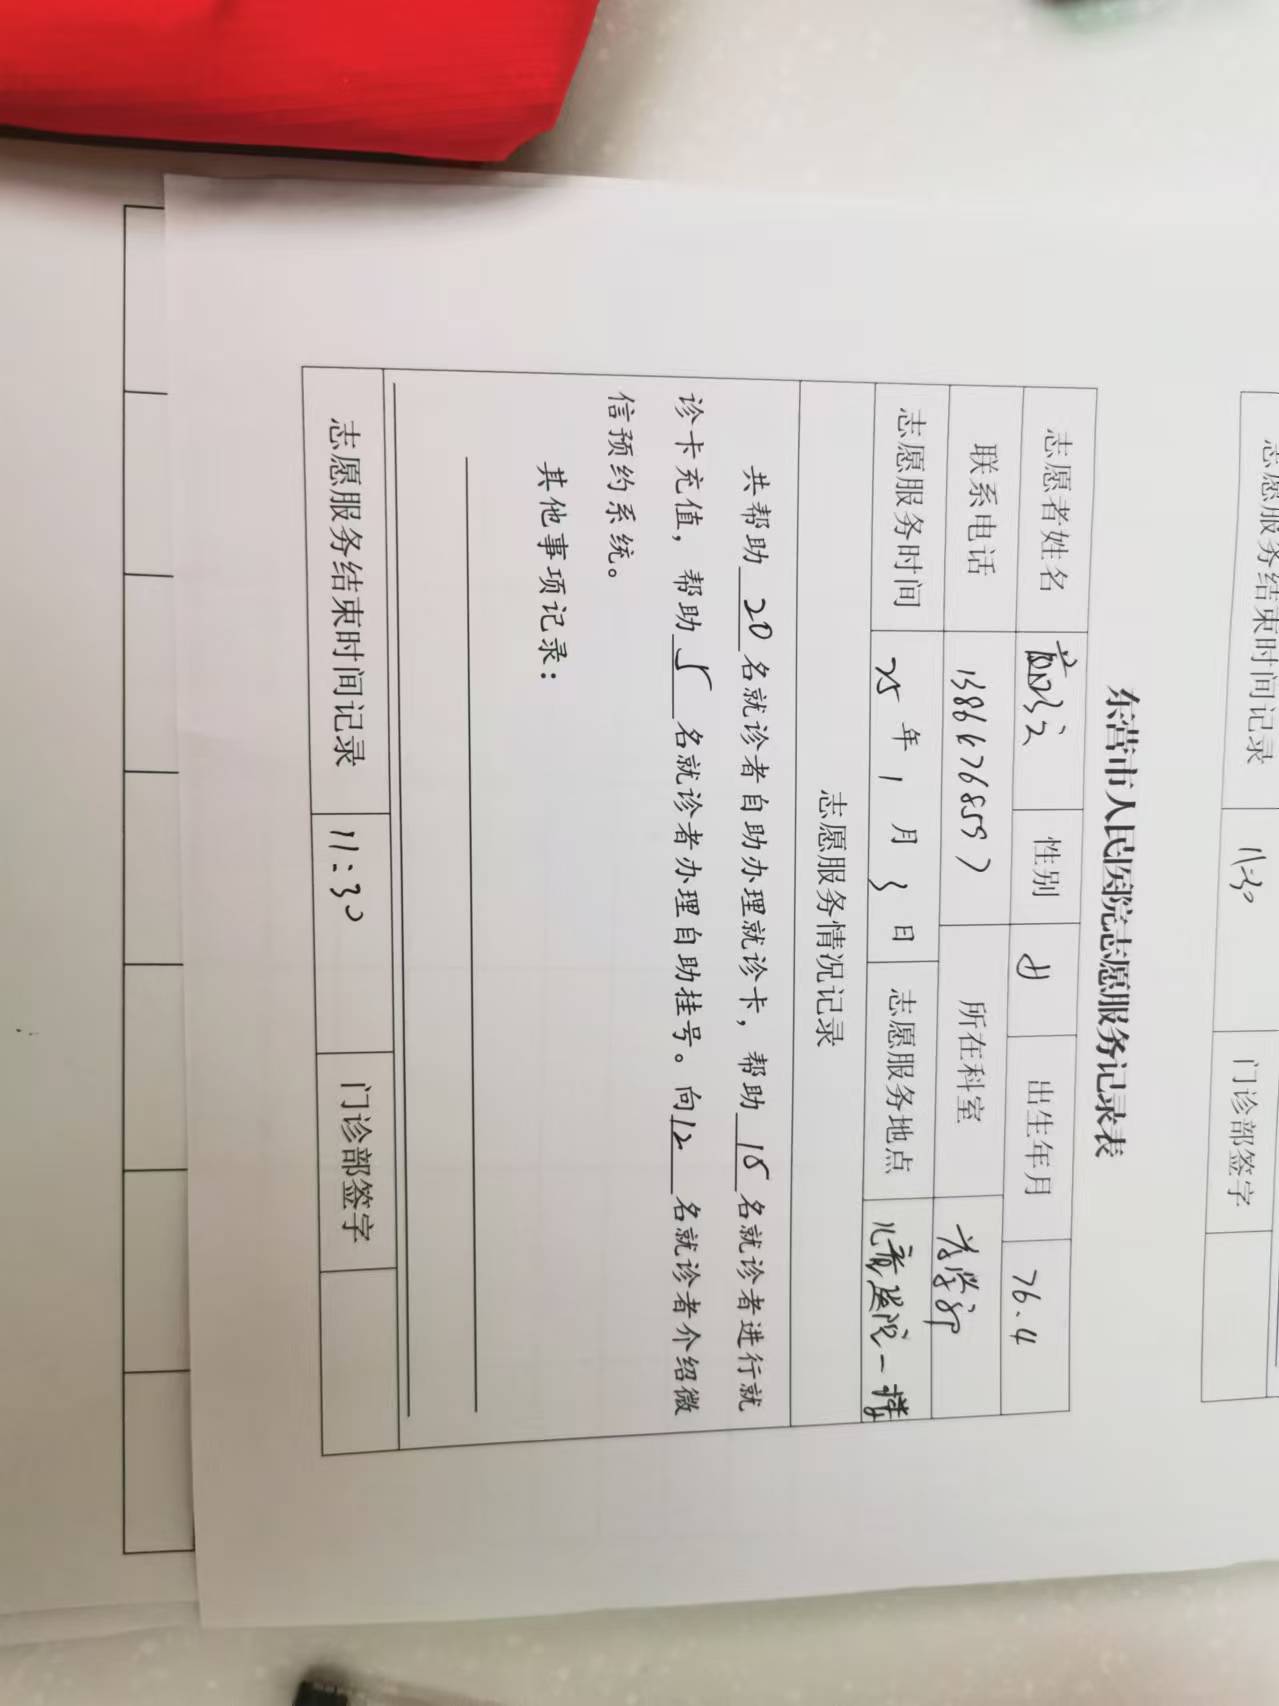 志愿服务结束时间记录 11:30 门诊部签字
东营市人民医院志愿服务记录表
志愿者姓名 性别 女 出生年月 76.4
联系电话 所在科室
志愿服务时间 25 年 1 月 3 日 志愿服务地点 儿童医院一楼
志愿服务情况记录
共帮助 20 名就诊者自助办理就诊卡，帮助 18 名就诊者进行就
诊卡充值，帮助 5 名就诊者办理自助挂号。向 12 名就诊者介绍微
信预约系统。
其他事项记录：
志愿服务结束时间记录 11:30 门诊部签字